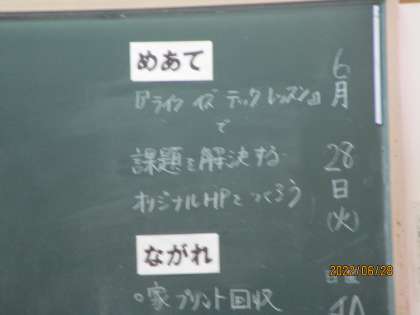 めあて
『ライフ イズ テック レッスン』
で
課題を解決する
オリジナルHPをつくろう
ながれ
○家プリント回収
6月28日(火)
2022/06/28